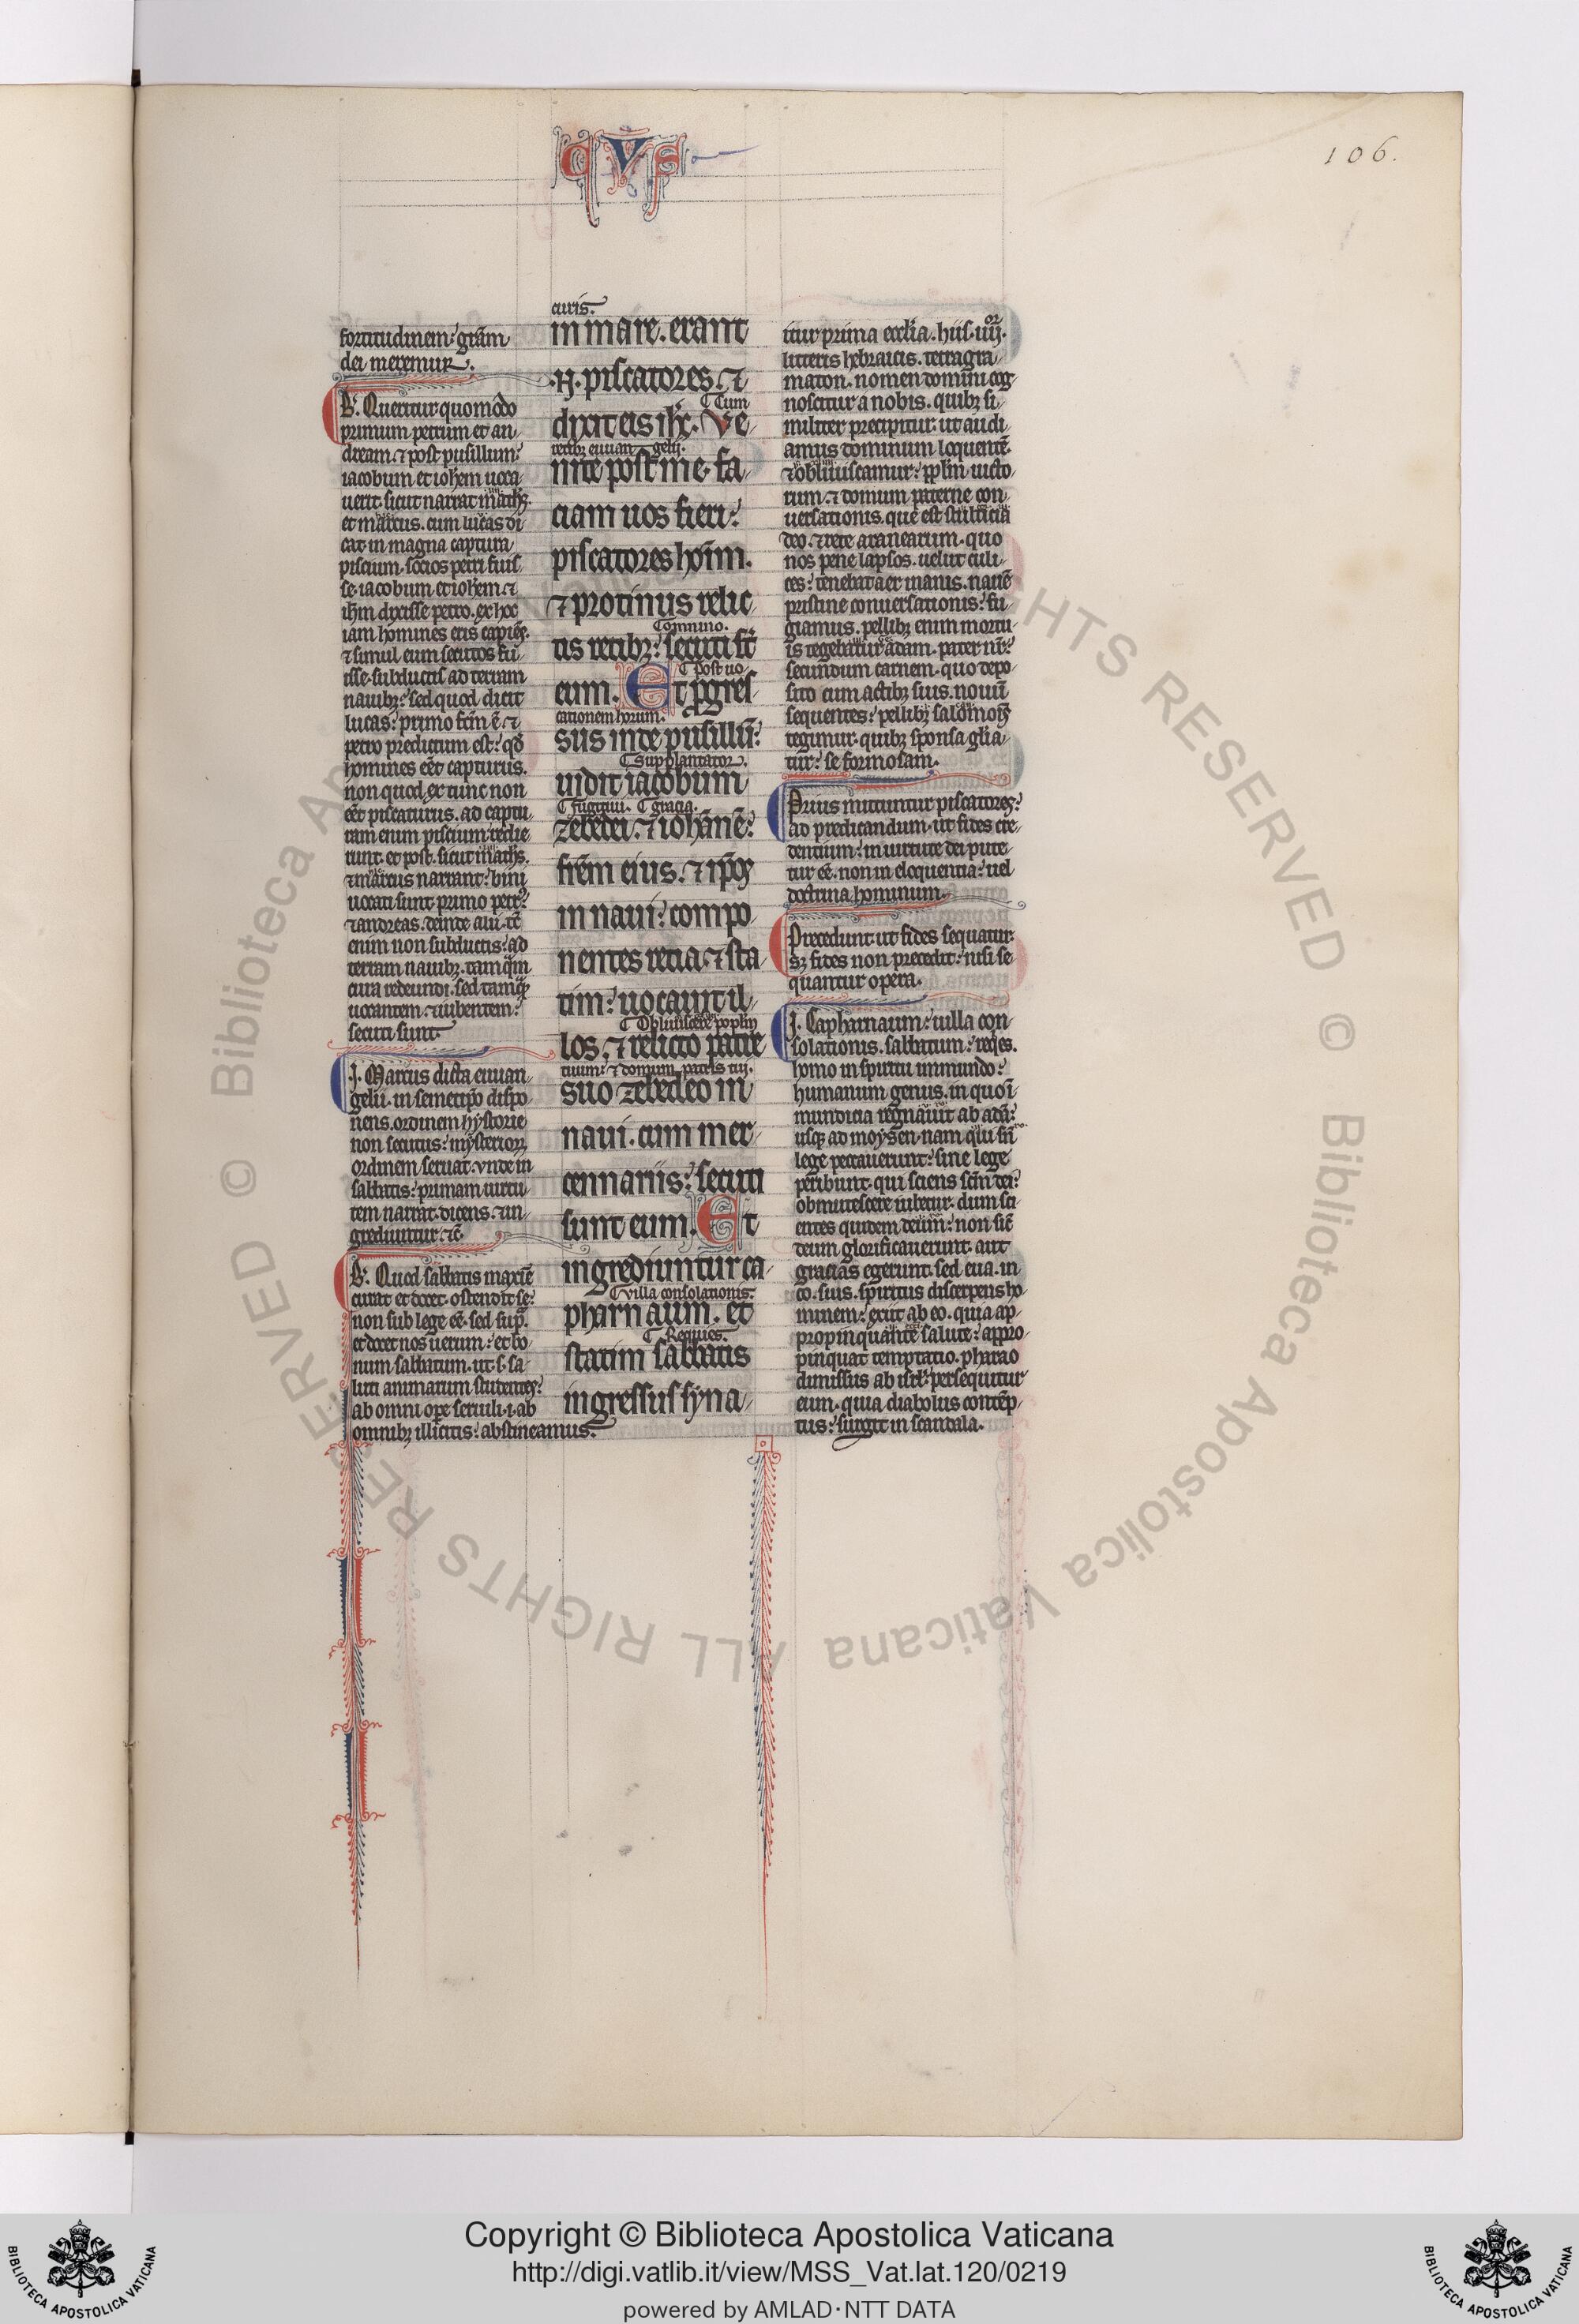 QVS
106.
fortitudinem: grãm
dei meremur.
B. Queritur quomodo
primum petrum et an
dream. ⁊ post pusillum:
iacobum et ioh̃em uoca
uerit. sicut narrat math̃s.
et marcus. cum lucas di
cat in magna captura
piscium. socios petri fuis
se. iacobum et ioh̃em. ⁊
ih̃m dixisse petro. ex hoc
iam homines eris capiẽs.
⁊ simul eum secutos fu
isse. subductis ad terram
nauibꝫ: sed quod dicit
lucas: primo fc̃m ẽ. ⁊
petro predictum est: qđ
homines eẽt capturus.
non quod ex tunc non
eẽt piscaturus. ad captu
ram enim piscium: redie
runt. et post. sicut math̃s.
⁊ marcus narrant: bini
uocati sunt. primo petr᷒
⁊ andreas. deinde alii. tc̃
enim non subductis: ad
terram nauibꝫ. tamq̃m
cura redeundi. sed tamq̃ꝫ
uocantem. ⁊ iubentem:
secuti sunt.
I. Marcus dicta euuan
gelii. in semetip̃o dispo
nens. ordinem hystorie
non secutus: mysterioꝝ
ordinem seruat. vnde in
sabbatis: primam uirtu
tem narrat. dicens. ⁊ in
grediuntur. ⁊c̃.
B. Quod sabbatis maxiẽ
curat et docet. ostendit se:
non sub lege eẽ. sed sup̃.
et docet nos uerum: et bo
num sabbatum. ut. s. sa
luti animarum studentes:
ab omni oꝑe seruili. i. ab
omnibꝫ illicitis: abstineamus.
curis.
in mare. erant
.N. piscatores. ⁊
Cum
dixit eis ih̃c. Ve
retibꝫ euuan gelii.
nite post me. fa
ciam uos fieri:
piscatores hoĩm.
⁊ protinus relic
Comnino.
tis retibꝫ: secuti st̃
Post uo
eum. Et ꝓgres
cationem horum.
sus inde pusillũ:
Supplantator.
uidit iacobum
fugitiui. gracia.
zebedei. ⁊ ioh̃anẽ:
fr̃em eius. ⁊ ip̃os
in naui: compo
nentes retia. ⁊ sta
tim: uocauit il
Obliuiscere popl̃m
los. ⁊ relicto patre
tuum: ⁊ domum patris tui.
suo zebedeo in
naui. cum mer
cennariis: secuti
sunt eum. Et
ingrediuntur ca
villa consolationis.
pharnaum. et
Requies.
statim sabbatis
ingressus syna
itur prima eccl̃ia. hiis. iiij.or
litteris hebraicis. tetragra
maton. nomen domini cog
noscitur a nobis. quibꝫ si
militer precipitur: ut audi
amus dominum loquentẽ.
⁊ obliuiscamur: pp̃lm. uicio
rum. ⁊ domum paterne con
uersationis. que est stulticia
deo. ⁊ rete aranearum. quo
nos pene lapsos. uelut culi
ces: tenebat aer inanis. nauẽ
pristine conuersationis: fu
giamus. pellibꝫ enim mortu
is tegebatur adam. pater nr̃:
secundum carnem. quo depo
sito cum actibꝫ suis. nouũ
sequentes: pellibꝫ salomoĩs
tegimur. quibꝫ sponsa glia
tur: se formosam.
Prius mittuntur piscatores:
ad predicandum. ut fides cre
dentium: in uirtute dei pute
tur eẽ. non in eloquentia: uel
doctrina hominum.
Precedunt ut fides sequatur.
sꝫ fides non precedit: nisi se
quantur opera.
I. Capharnaum: uilla con
solationis. sabbatum: req̃es.
homo in spiritu inmundo:
humanum genus. in quo ĩ
mundicia regnauit ab adã:
usqꝫ ad moysen. nam qui sñ
lege peccauerunt: sine lege
peribunt. qui sciens sc̃m dei:
obmutescere iubetur. dum sci
entes quidem deum: non sic̃
deum glorificauerunt. aut
gracias egerunt. sed eua. in
co. suis. spiritus discerpens ho
minem: exiit ab eo. quia ap
propinquante salute: appro
pinquat temptatio. pharao
dimissus ab isrl̃: persequitur
eum. quia diabolus contẽp
tus: surgit in scandala.
Copyright © Biblioteca Apostolica Vaticana
http://digi.vatlib.it/view/MSS_Vat.lat.120/0219
powered by AMLAD·NTT DATA
BIBLIOTECA APOSTOLICA VATICANA
BIBLIOTECA APOSTOLICA VATICANA
© Biblioteca Apostolica Vaticana ALL RIGHTS RESERVED